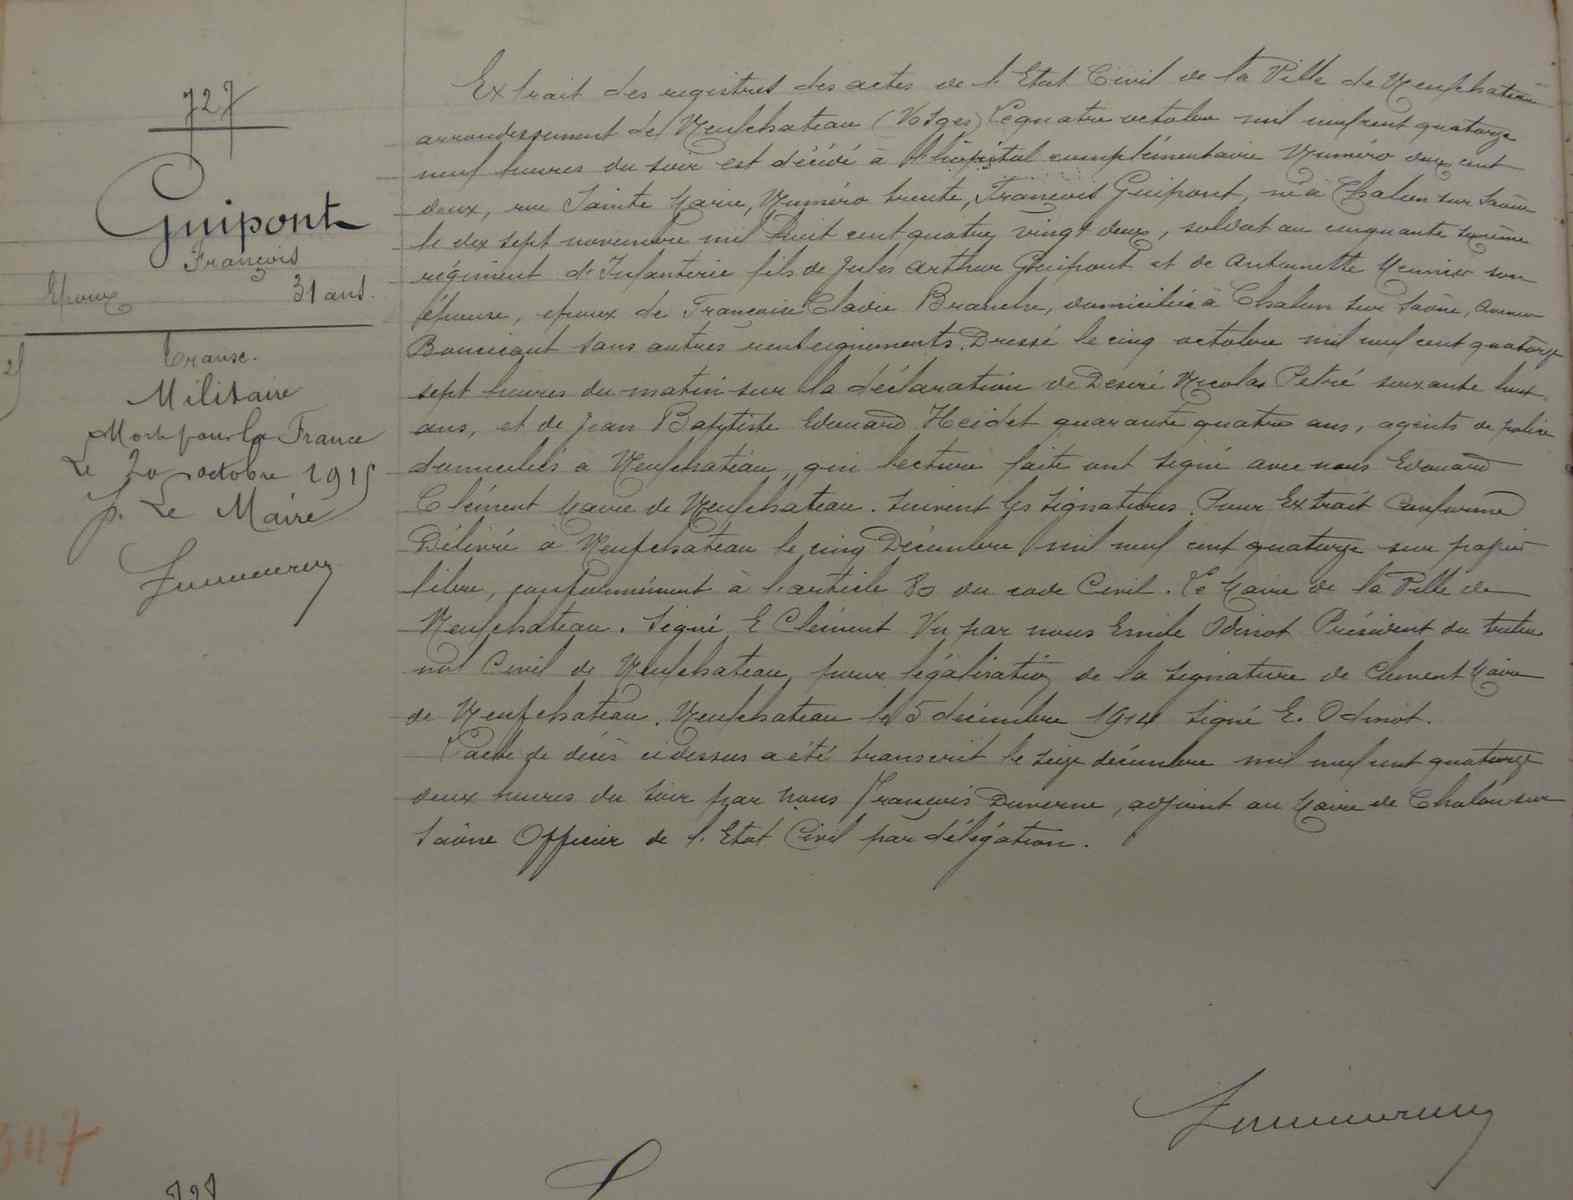 727
Guipont
François
Epoux 31 ans.
Transc.
Militaire
Mort pour la France
Le 20 octobre 1915
p. Le Maire
Extrait des registres des actes de l'Etat Civil de la Ville de Neufchateau
arrondissement de Neufchateau (Vosges) Le quatre octobre mil neuf cent quatorze
neuf heures du soir est décédé à l'hôpital complémentaire Numéro deux cent
deux, rue Sainte Marie, Numéro trente, François Guipont, né à Chalon sur Saône
le dix sept novembre mil huit cent quatre vingt deux, soldat au cinquante sixième
régiment d'Infanterie fils de Jules Arthur Guipont et de Antoinette Meunier son
épouse, epoux de Françoise Clavie Branche, domiciliée à Chalon sur Saône, avenue
Boucicaut sans autres renseignements. Dressé le cinq octobre mil neuf cent quatorze
sept heures du matin sur la déclaration de Desiré Nicolas Petré soixante huit
ans, et de Jean Baptiste Edouard Heidet quarante quatre ans, agents de police
domiciliés à Neufchateau, qui lecture faite ont signé avec nous Edouard
Clément Maire de Neufchateau. Suivent les signatures. Pour Extrait Conforme
Délivré à Neufchateau le cinq Décembre mil neuf cent quatorze sur papier
libre, conformément à l'article 80 du code Civil. Le Maire de la Ville de
Neufchateau. Signé E Clément Vu par nous Emile Odinot Président du tribu
nal Civil de Neufchateau, pour légalisation de la signature de Clement Maire
de Neufchateau. Neufchateau le 5 décembre 1914 Signé E. Odinot.
L'acte de décès ci dessus a été transcrit le seize décembre mil neuf cent quatorze
deux heures du soir par nous François Duverne, adjoint au Maire de Chalon sur
Saône Officier de l'Etat Civil par délégation.